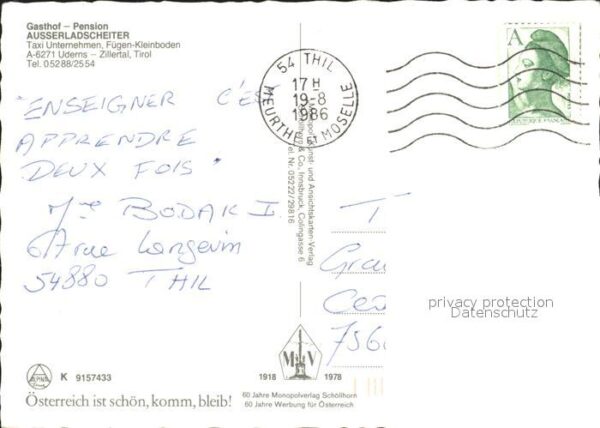 Gasthof – Pension
AUSSERLADSCHEITER
Taxi Unternehmen, Fügen-Kleinboden
A-6271 Uderns – Zillertal, Tirol
Tel. 05288/2554
54 THIL
17 H
19-8
1986
MEURTHE ET MOSELLE
A
"ENSEIGNER C'ES
APPRENDRE
DEUX FOIS"
Mme BODAK I.
rue Langevin
54880 THIL
T
Gra
Ced
756
privacy protection
Datenschutz
Kunst- und Ansichtskarten-Verlag
& Co., Innsbruck, Colingasse 6
Tel. Nr. 05222/29816
M V
1918 1978
60 Jahre Monopolverlag Schöllhorn
60 Jahre Werbung für Österreich
K 9157433
Österreich ist schön, komm, bleib!